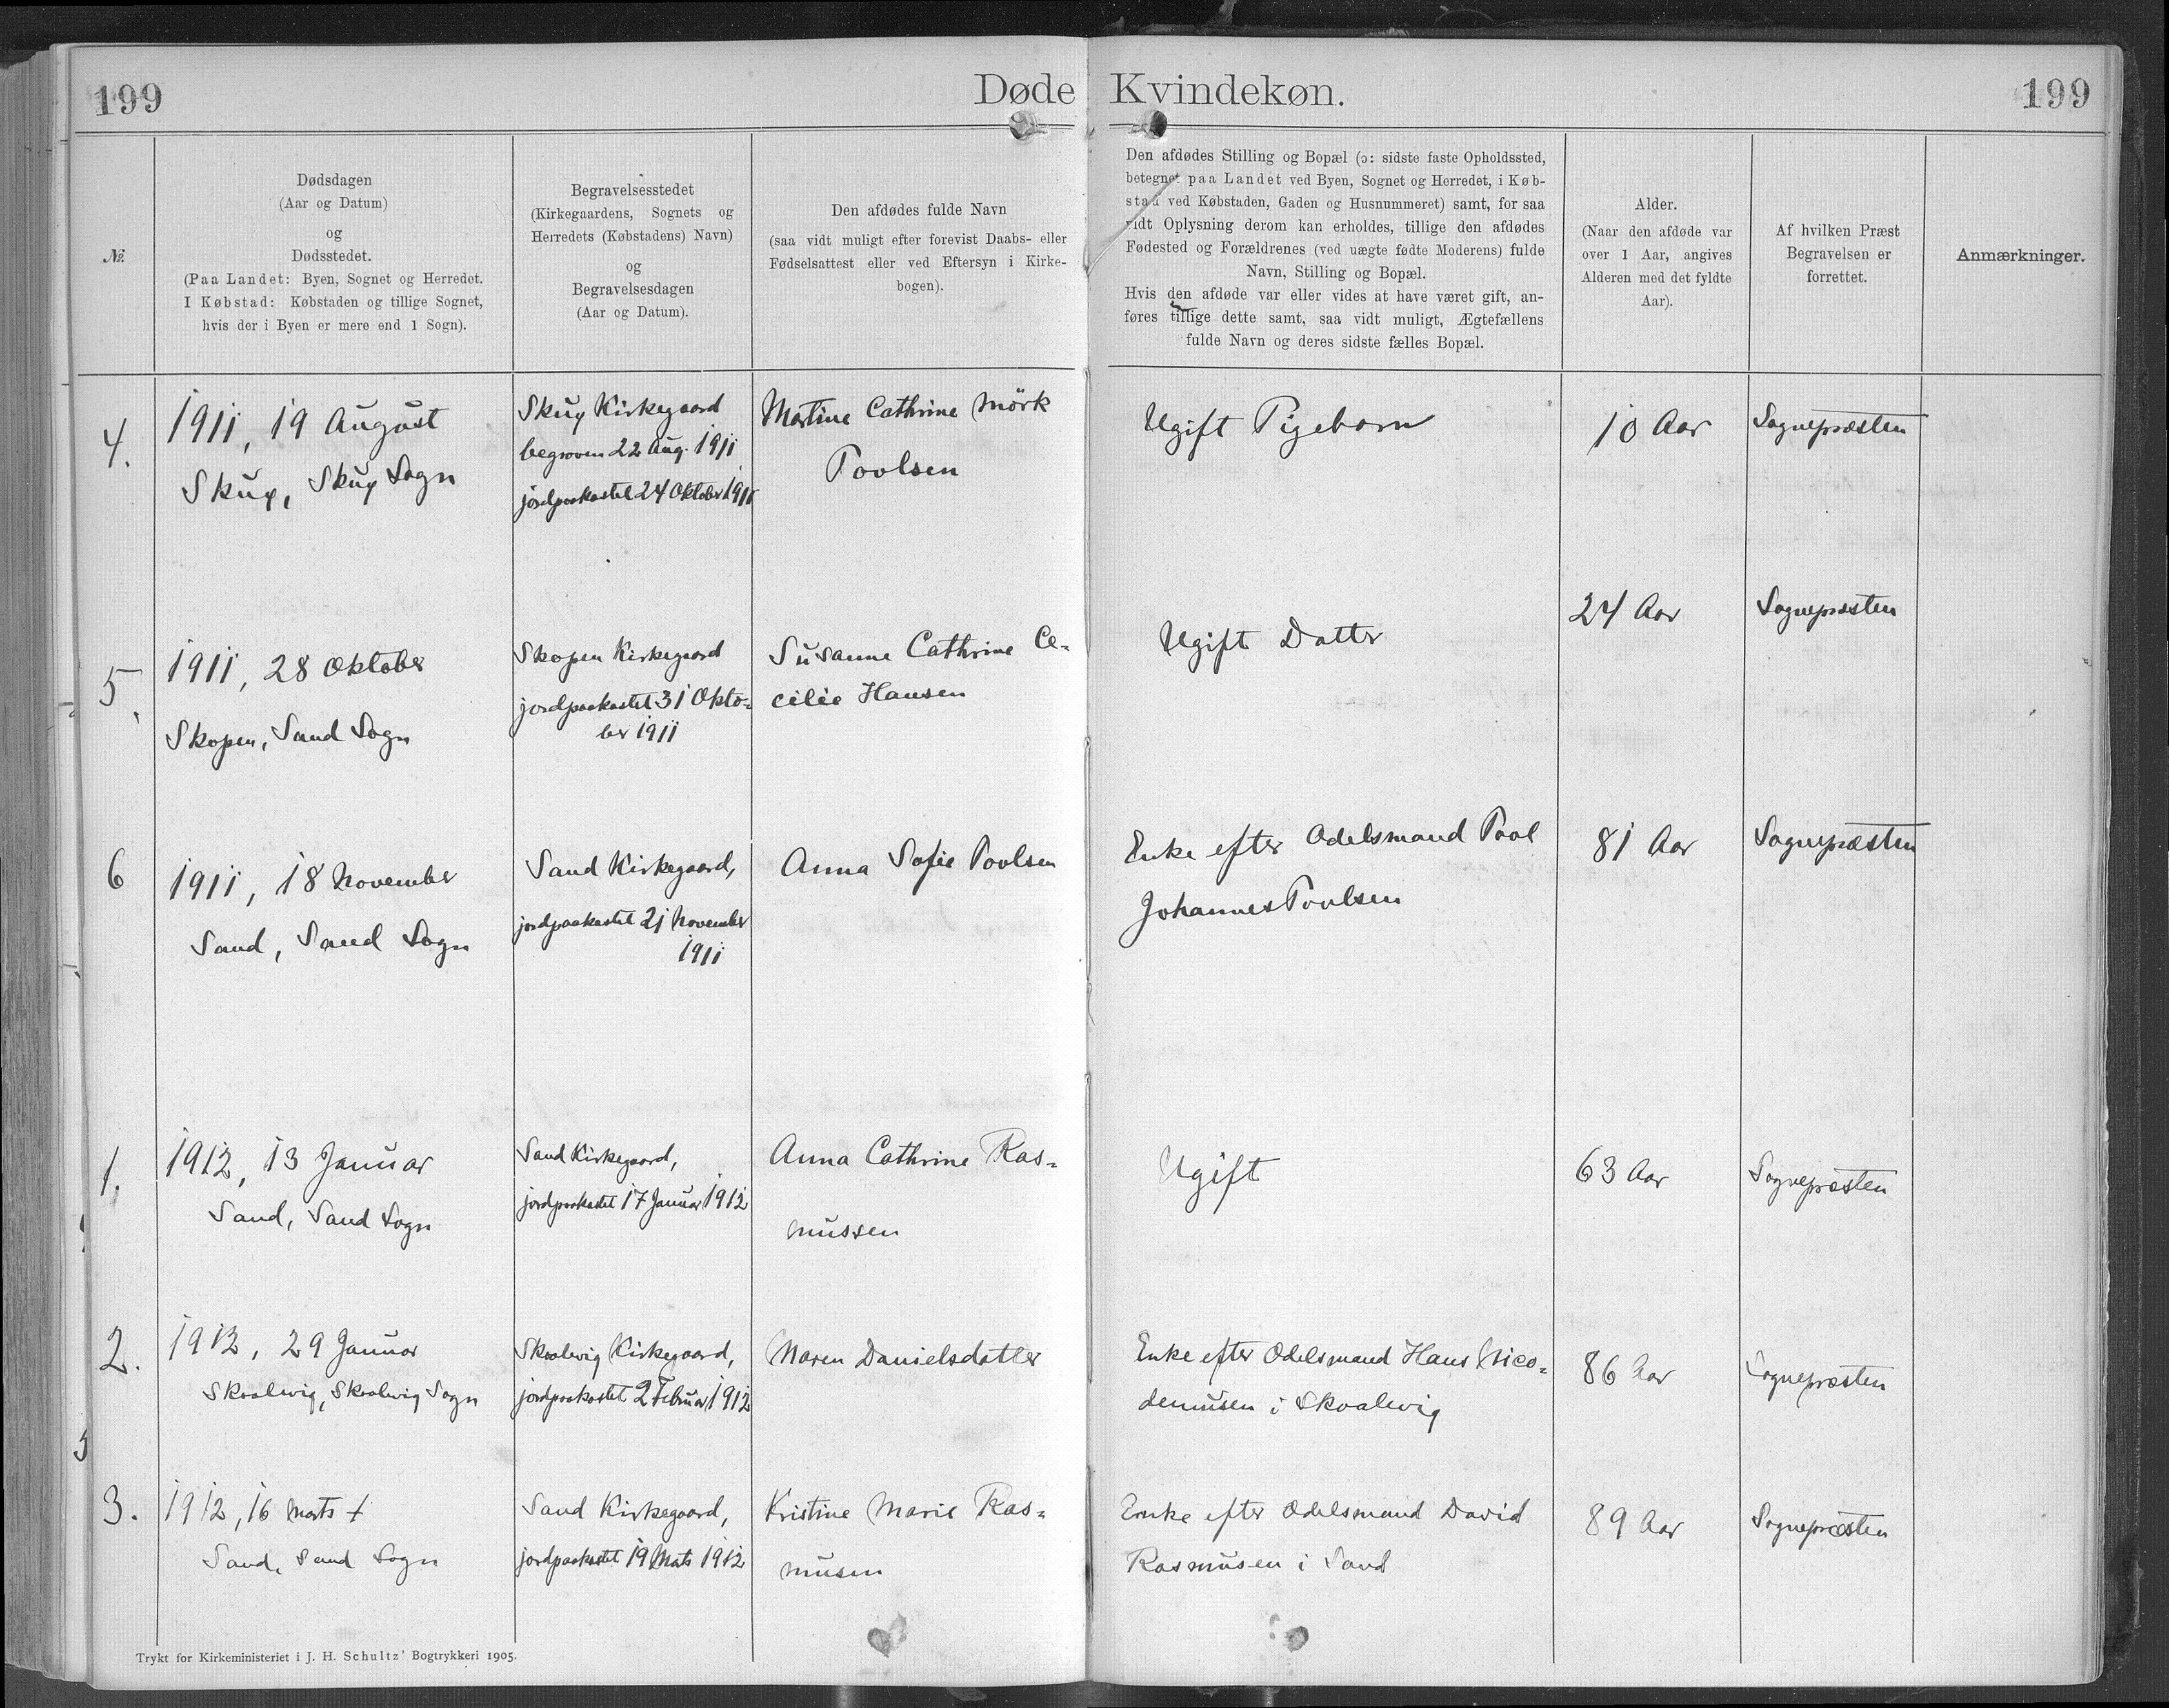 199
Døde Kvindekøn.
199
№
Dødsdagen
(Aar og Datum)
og
Dødsstedet.
(Paa Landet: Byen, Sognet og Herredet.
I Købstad: Købstaden og tillige Sognet,
hvis der i Byen er mere end 1 Sogn).
Begravelsesstedet
(Kirkegaardens, Sognets og
Herredets (Købstadens) Navn)
og
Begravelsesdagen
(Aar og Datum).
Den afdødes fulde Navn
(saa vidt muligt efter forevist Daabs- eller
Fødselsattest eller ved Eftersyn i Kirke-
bogen).
Den afdødes Stilling og Bopæl (ɔ: sidste faste Opholdssted,
betegnet paa Landet ved Byen, Sognet og Herredet, i Køb-
stad ved Købstaden, Gaden og Husnummeret) samt, for saa
vidt Oplysning derom kan erholdes, tillige den afdødes
Fødested og Forældrenes (ved uægte fødte Moderens) fulde
Navn, Stilling og Bopæl.
Hvis den afdøde var eller vides at have været gift, an-
føres tillige dette samt, saa vidt muligt, Ægtefællens
fulde Navn og deres sidste fælles Bopæl.
Alder.
(Naar den afdøde var
over 1 Aar, angives
Alderen med det fyldte
Aar).
Af hvilken Præst
Begravelsen er
forrettet.
Anmærkninger.
4.
1911, 19 August
Skuø, Skuø Sogn
Skuø Kirkegaard
begraven 22 Aug. 1911
jordpaakastet 24 Oktober 1911
Martine Cathrine Mörk
Poulsen
Ugift Pigebarn
10 Aar
Sognepræsten
5.
1911, 28 Oktober
Skopen, Sand Sogn
Skopen Kirkegaard
jordpaakastet 31 Okto-
ber 1911
Susanne Cathrine Ce-
cilie Hansen
Ugift Datter
24 Aar
Sognepræsten
6
1911, 18 November
Sand, Sand Sogn
Sand Kirkegaard,
jordpaakastet 21 November
1911
Anna Sofie Poulsen
Enke efter Odelsmand Poul
Johannes Poulsen
81 Aar
Sognepræsten
1.
1912, 13 Januar
Sand, Sand Sogn
Sand Kirkegaard,
jordpaakastet 17 Januar 1912
Anna Cathrine Ras-
mussen
Ugift
63 Aar
Sognepræsten
2.
1912, 29 Januar
Skaalevig, Skaalevig Sogn
Skaalevig Kirkegaard,
jordpaakastet 2 Februar 1912
Maren Danielsdatter
Enke efter Odelsmand Hans Nico-
demusen i Skaalevig
86 Aar
Sognepræsten
3.
1912, 16 Marts +
Sand, Sand Sogn
Sand Kirkegaard,
jordpaakastet 19 Marts 1912
Kristine Marie Ras-
musen
Enke efter Odelsmand David
Rasmusen i Sand
89 Aar
Sognepræsten
Trykt for Kirkeministeriet i J. H. Schultz' Bogtrykkeri 1905.